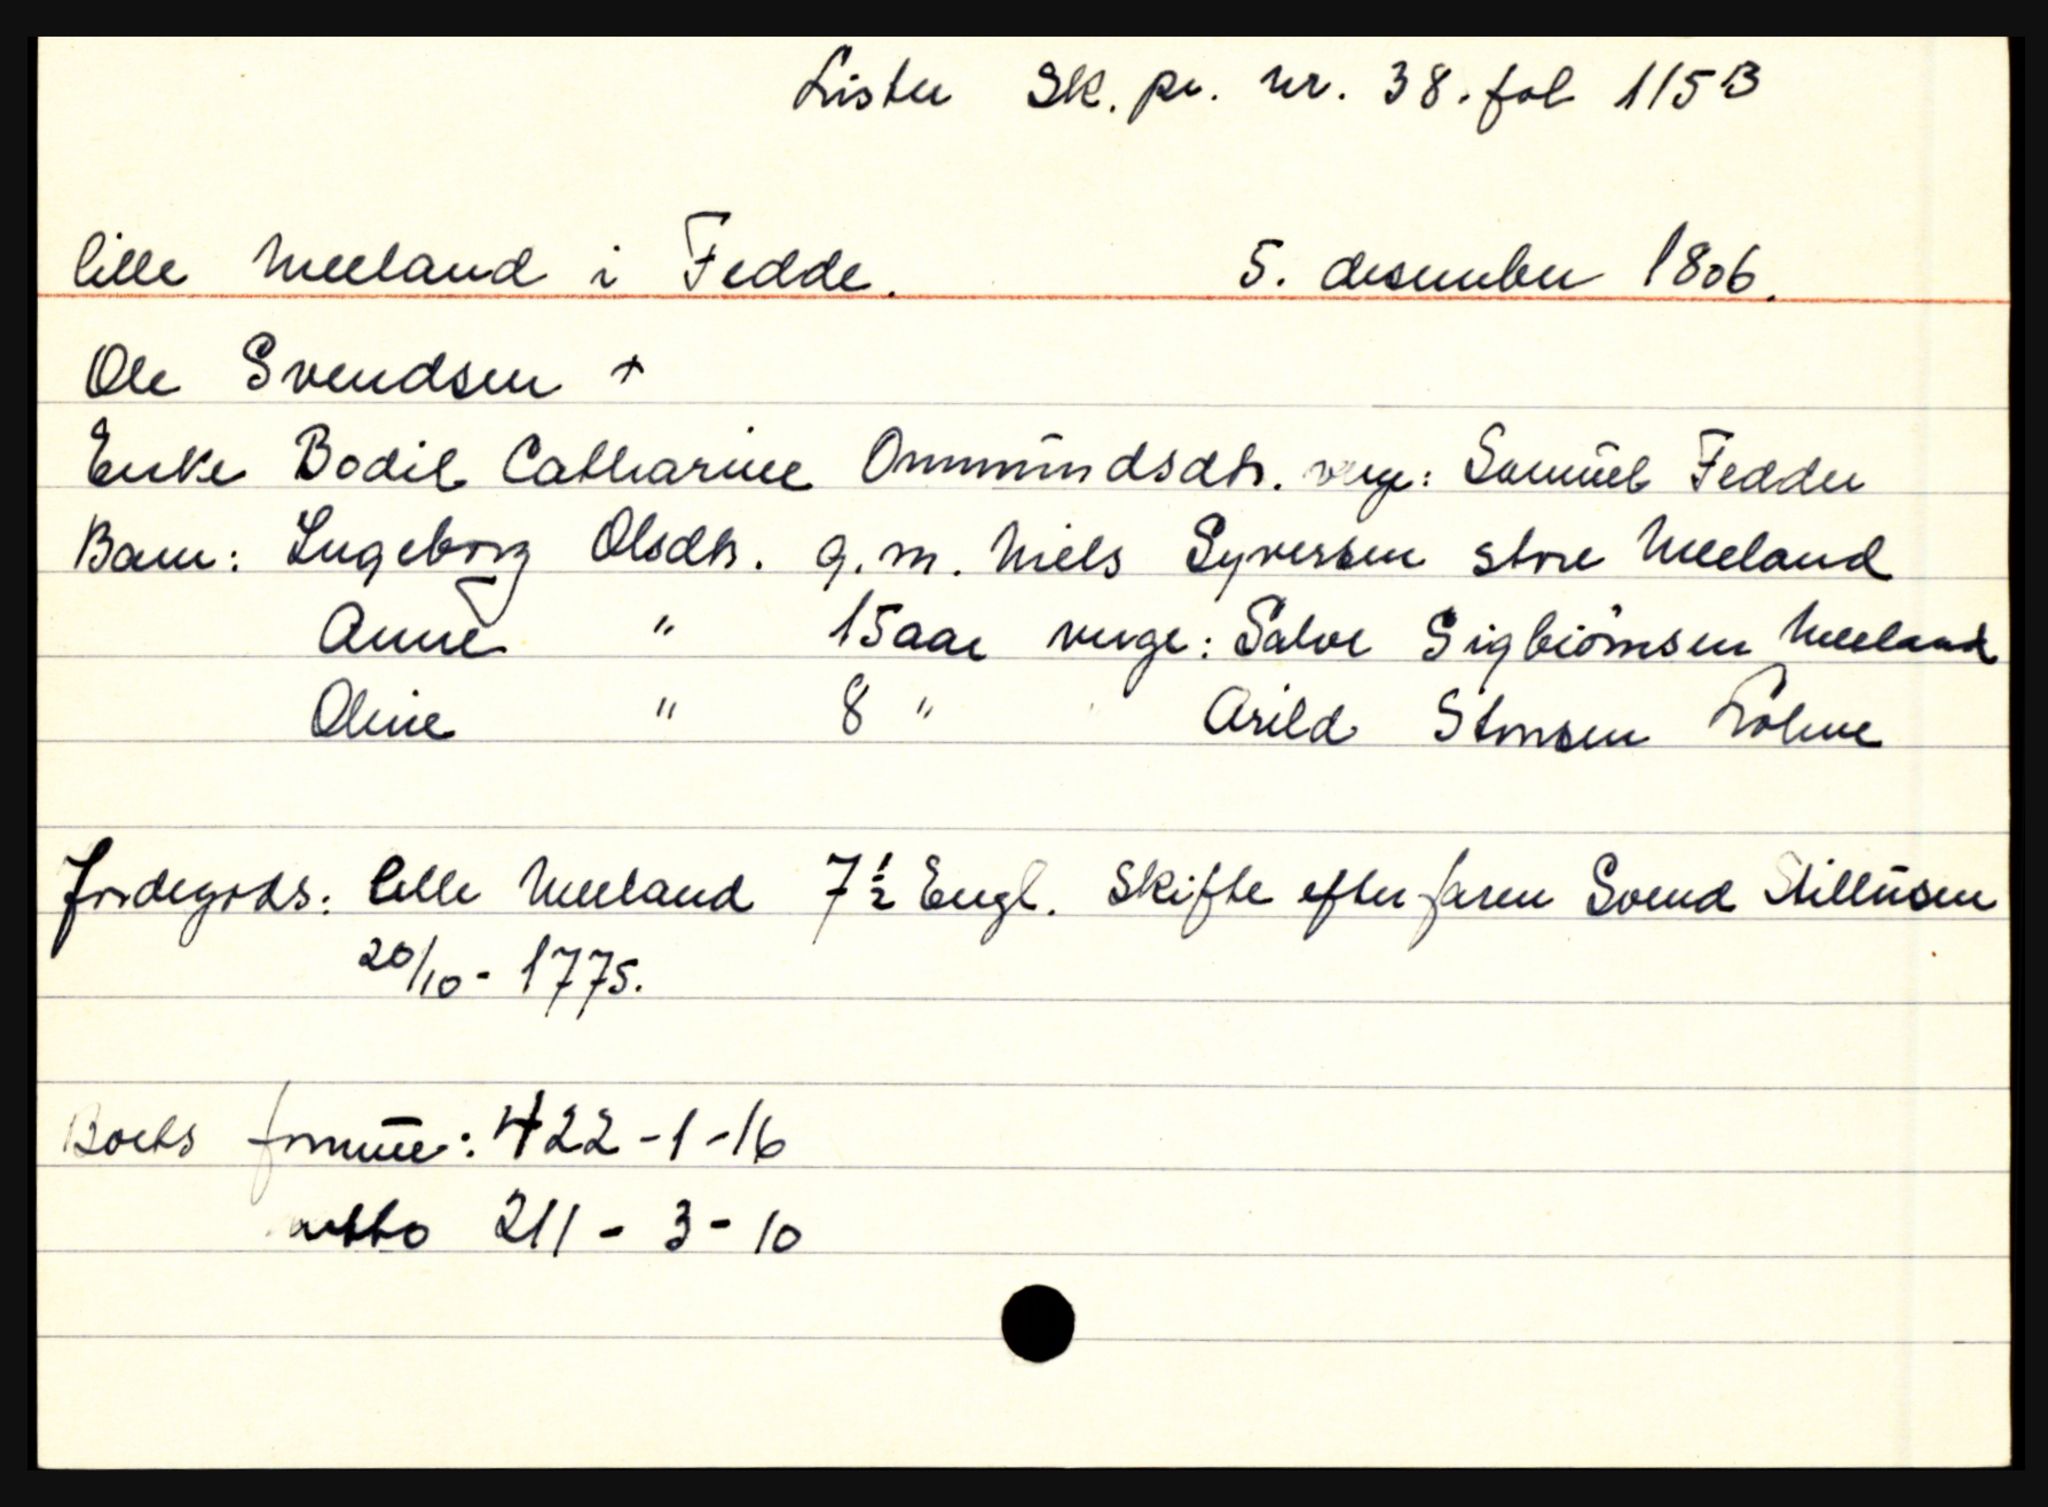 Lister Sk. pr. nr. 38. fol 115B
lille Meeland i Fedde. 5. desember 1806.
Ole Svendsen +
Enke Bodil Catharine Ommundsdtr. verge: Samuel Fedde
Barn: Ingeborg Olsdtr. g. m. Niels Syversen store Meeland
Anne " 15 aar verge: Salve Sigbiørnsen Meeland
Oline " 8 " Arild
Jordegods: lille Meeland 7 ½ Engl. Skifte efter faren Svend
20/10 - 1775.
Boets formue: 422 - 1 - 16
netto 211 - 3 - 10